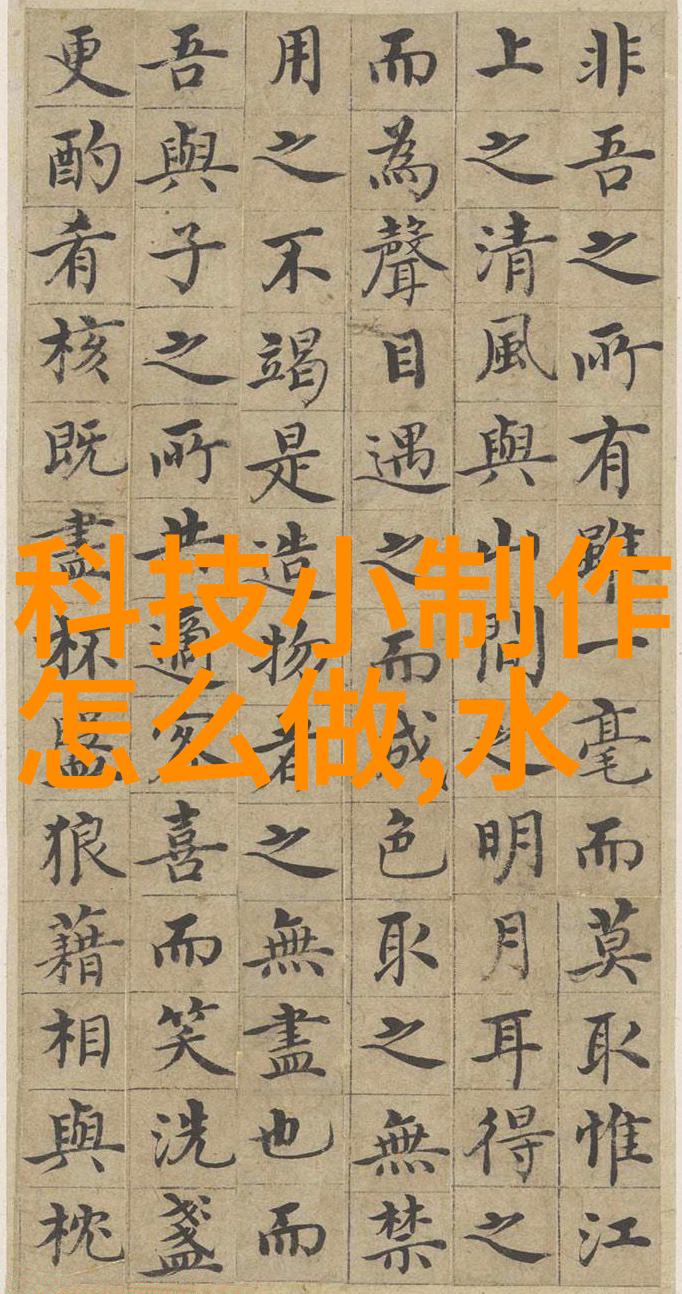 非吾之所有雖一毫而莫取惟江
上之清風與山間之明月耳得之
而為聲目遇之而成色取之無禁
用之不竭是造物者之無盡也而
吾與子之所共適客喜而笑洗盞
更酌肴核既盡杯盤狼藉相與枕
科技小制作
怎么做,水